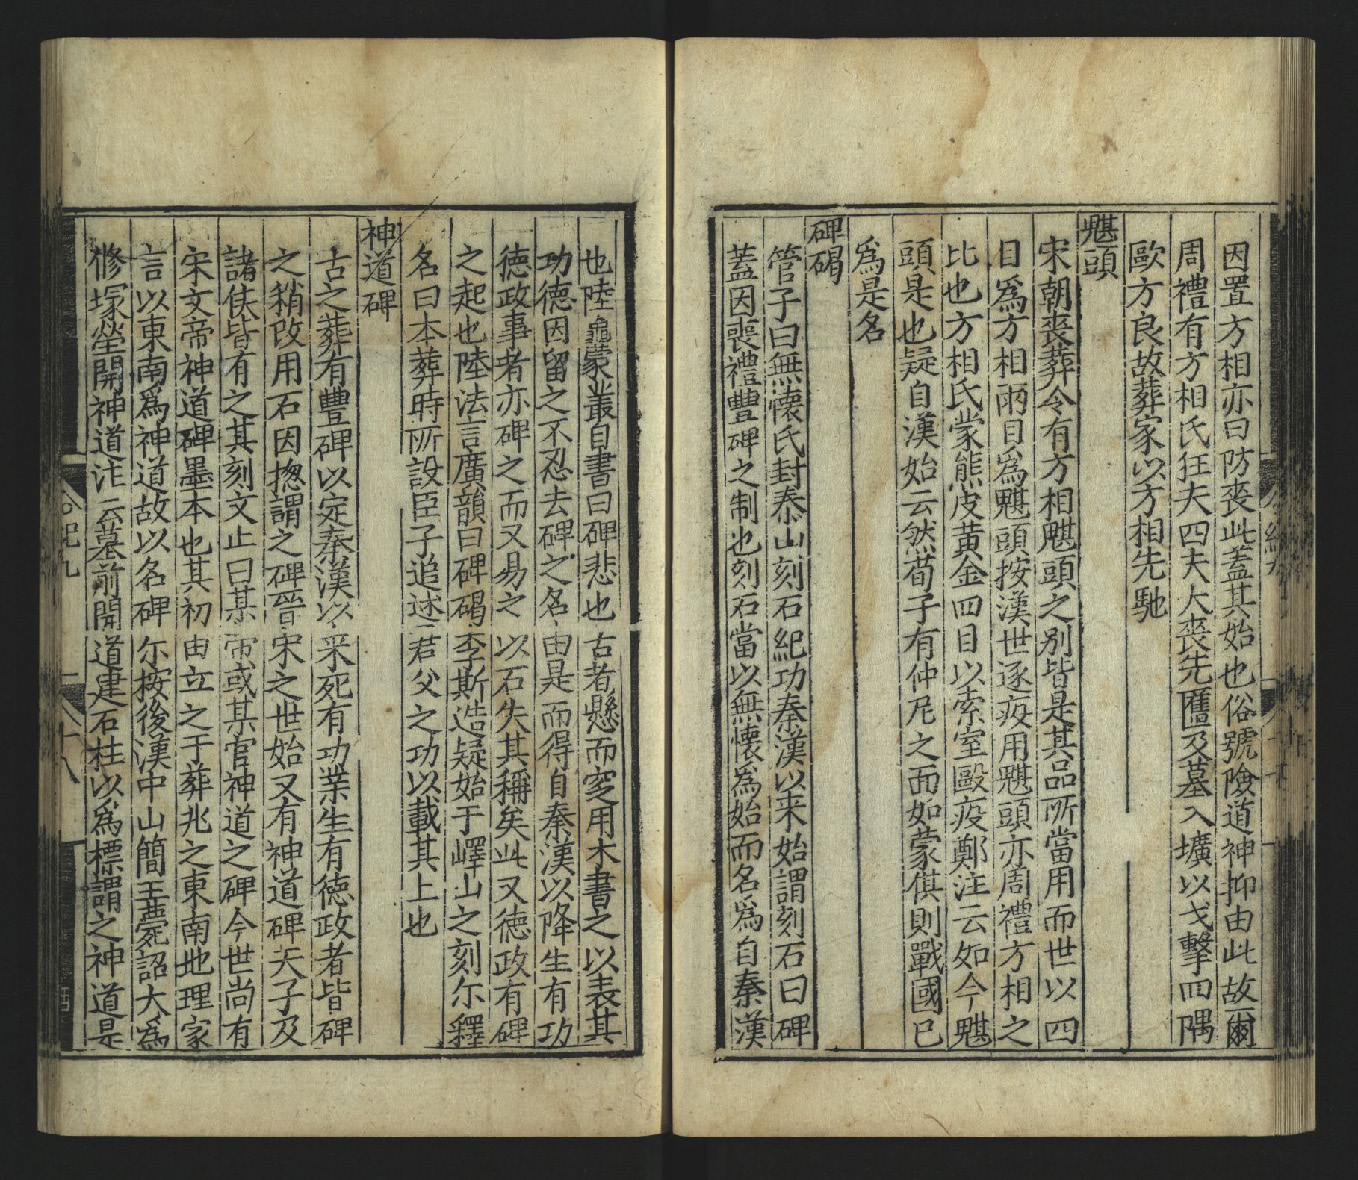 因置方相亦曰防喪此蓋其始也俗號險道神抑由此故爾
周禮有方相氏狂夫四夫大喪先匶及墓入壙以戈擊四隅
歐方良故葬家以方相先馳
魌頭
宋朝喪葬令有方相魌頭之别皆是其品所當用而世以四
目爲方相兩目爲魌頭按漢世逐疫用魌頭亦周禮方相之
比也方相氏蒙熊皮黃金四目以索室毆疫鄭注云如今魌
頭是也疑自漢始云然荀子有仲尼之面如蒙倛則戰國已
爲是名
碑碣
管子曰無懷氏封泰山刻石紀功秦漢以来始謂刻石曰碑
蓋因喪禮豐碑之制也刻石當以無懷爲始而名爲自秦漢
也陸龜蒙叢自書曰碑悲也古者懸而窆用木書之以表其
功德因留之不忍去碑之名由是而得自秦漢以降生有功
德政事者亦碑之而又易之以石失其稱矣此又德政有碑
之起也陸法言廣韻曰碑碣李斯造疑始于嶧山之刻尔釋
名曰本葬時所設臣子追述君父之功以載其上也
神道碑
古之葬有豐碑以窆秦漢以来死有功業生有德政者皆碑
之稍改用石因揔謂之碑晉宋之世始又有神道碑天子及
諸侯皆有之其刻文止曰某帝或某官神道之碑今世尚有
宋文帝神道碑墨本也其初由立之于葬兆之東南地理家
言以東南爲神道故以名碑尔按後漢中山簡王薨詔大爲
修塚塋開神道注云墓前開道建石柱以爲標謂之神道是
十八